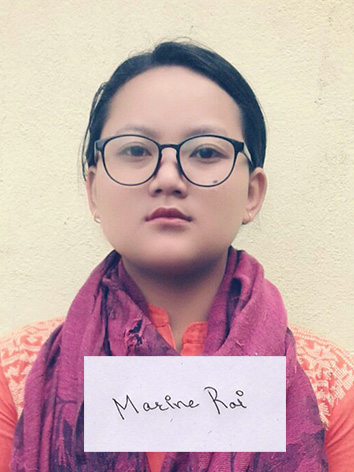 Marine Rai